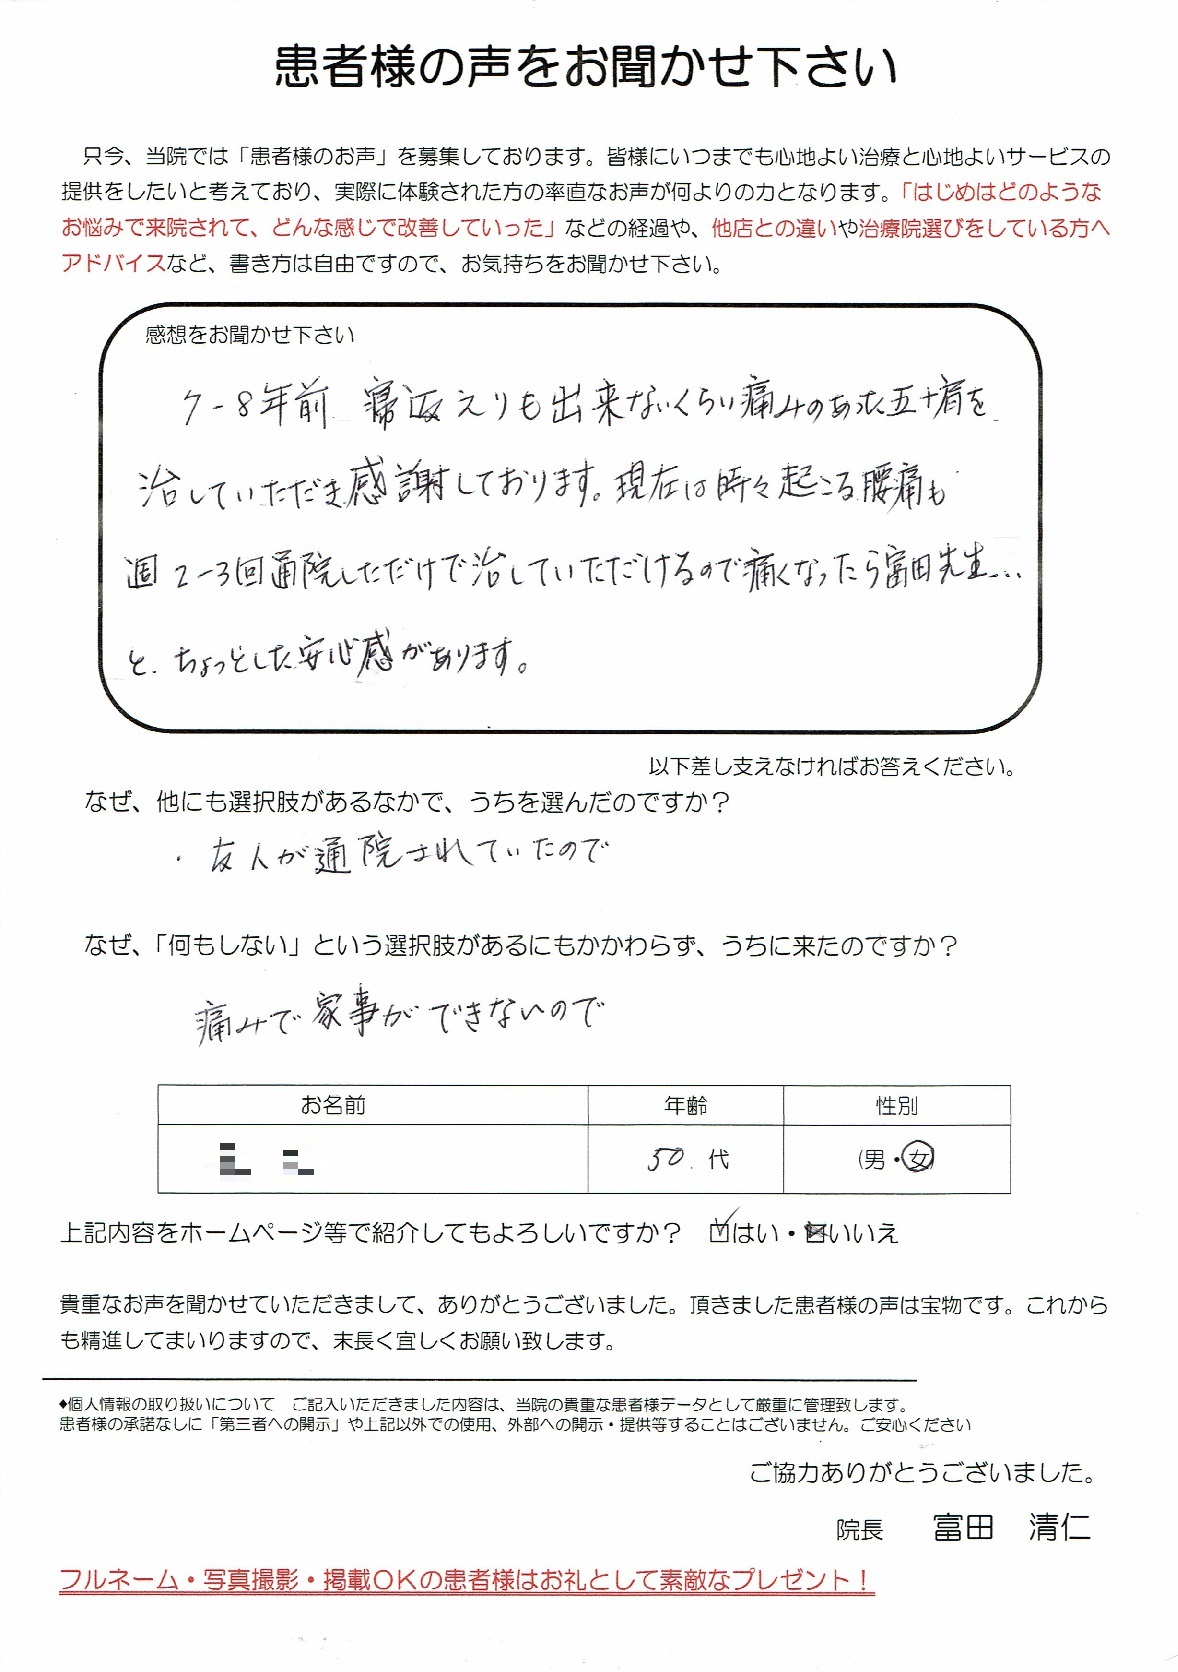 患者様の声をお聞かせ下さい
只今、当院では「患者様のお声」を募集しております。皆様にいつまでも心地よい治療と心地よいサービスの
提供をしたいと考えており、実際に体験された方の率直なお声が何よりの力となります。「はじめはどのような
お悩みで来院されて、どんな感じで改善していった」などの経過や、他店との違いや治療院選びをしている方へ
アドバイスなど、書き方は自由ですので、お気持ちをお聞かせ下さい。
感想をお聞かせ下さい
7-8年前 寝返えりも出来ないくらい痛みのあった五十肩を
治していただき感謝しております。現在は時々起こる腰痛も
週2-3回通院しただけで治していただけるので痛くなったら富田先生...
と、ちょっとした安心感があります。
以下差し支えなければお答えください。
なぜ、他にも選択肢があるなかで、うちを選んだのですか？
・友人が通院されていたので
なぜ、「何もしない」という選択肢があるにもかかわらず、うちに来たのですか？
痛みで家事ができないので
お名前 年齢 性別
50.代 (男・女)
上記内容をホームページ等で紹介してもよろしいですか？ ☑はい・☒いいえ
貴重なお声を聞かせていただきまして、ありがとうございました。頂きました患者様の声は宝物です。これから
も精進してまいりますので、末長く宜しくお願い致します。
♦個人情報の取り扱いについて ご記入いただきました内容は、当院の貴重な患者様データとして厳重に管理致します。
患者様の承諾なしに「第三者への開示」や上記以外での使用、外部への開示・提供等することはございません。ご安心ください
ご協力ありがとうございました。
院長 富田 清仁
フルネーム・写真撮影・掲載OKの患者様はお礼として素敵なプレゼント！